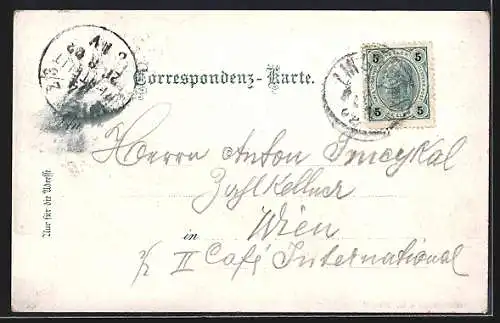 Correspondenz-Karte.
5 5
5 5
Herrn Anton Smeykal
Zahlkellner
Wien
in
II Café International
Nur für die Adresse